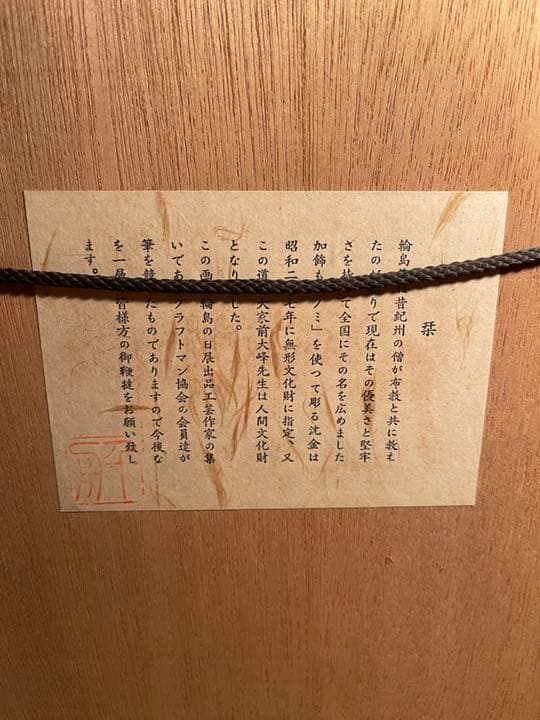 栞
輪島 昔紀州の僧が布教と共に教え
たの りで現在はその優美さと堅牢
さを持 て全国にその名を広めました
加飾も ノミ」を使つて彫る沈金は
昭和二 七年に無形文化財に指定、又
この道 大家前大峰先生は人間文化財
となり した。
この画 輪島の日展出品工芸作家の集
いであ クラフトマン協会の会員達が
筆を競 たものでありますので今後な
を一層 皆様方の御鞭撻をお願い致し
ます。